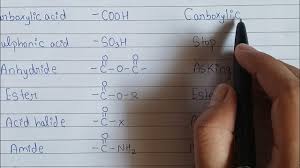 arboxylic acid -COOH Carboxylic
sulphonic acid -SO₃H Stop
Anhydride -C-O-C- Asking
O O
Ester -C-O-R
O
Acid halide -C-X
O
Amide -C-NH₂
O